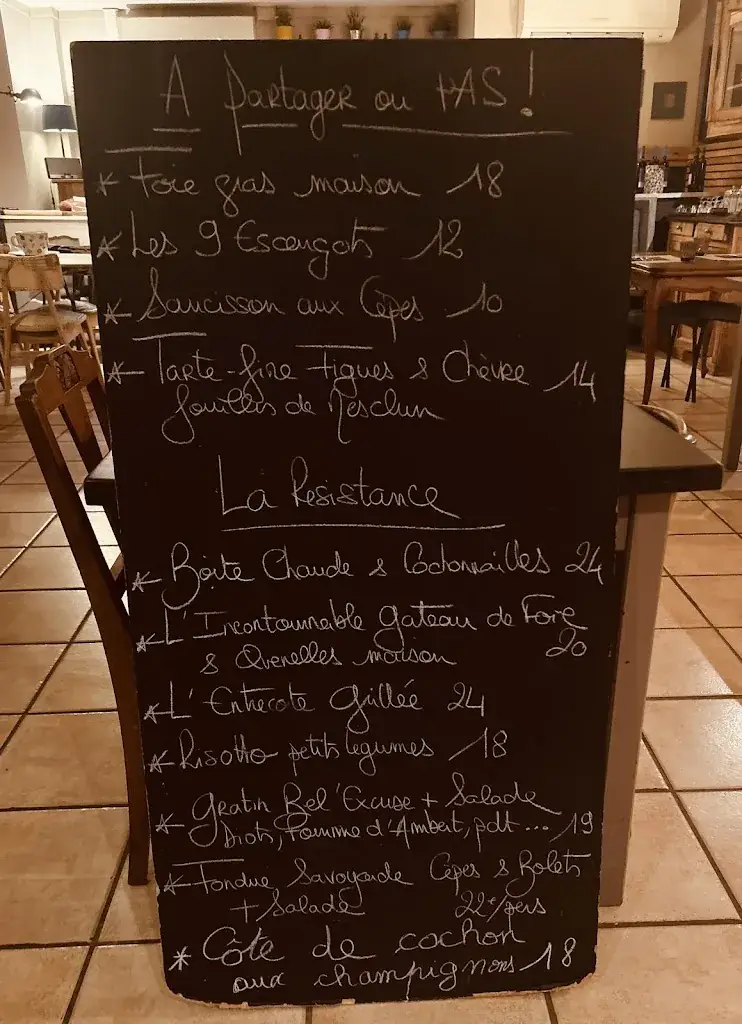 A Partager ou PAS !
* Foie gras maison 18
* Les 9 Escargots 12
* Saucisson aux Cèpes 10
* Tarte-fine Figues & Chèvre 14
de Mesclun
La Resistance
* Boite Chaude & Cochonnailles 24
* L'Incontournable gateau de Foie
& Quenelles maison 20
* L'Entrecote Grillée 24
* Risotto petits legumes 18
* Gratin Bel'Excuse + Salade
Diots, Fourme d'Ambert, pdt ... 19
* Fondue Savoyarde Cèpes & Bolets
+ Salade 22€/pers
* Côte de cochon
aux champignons 18